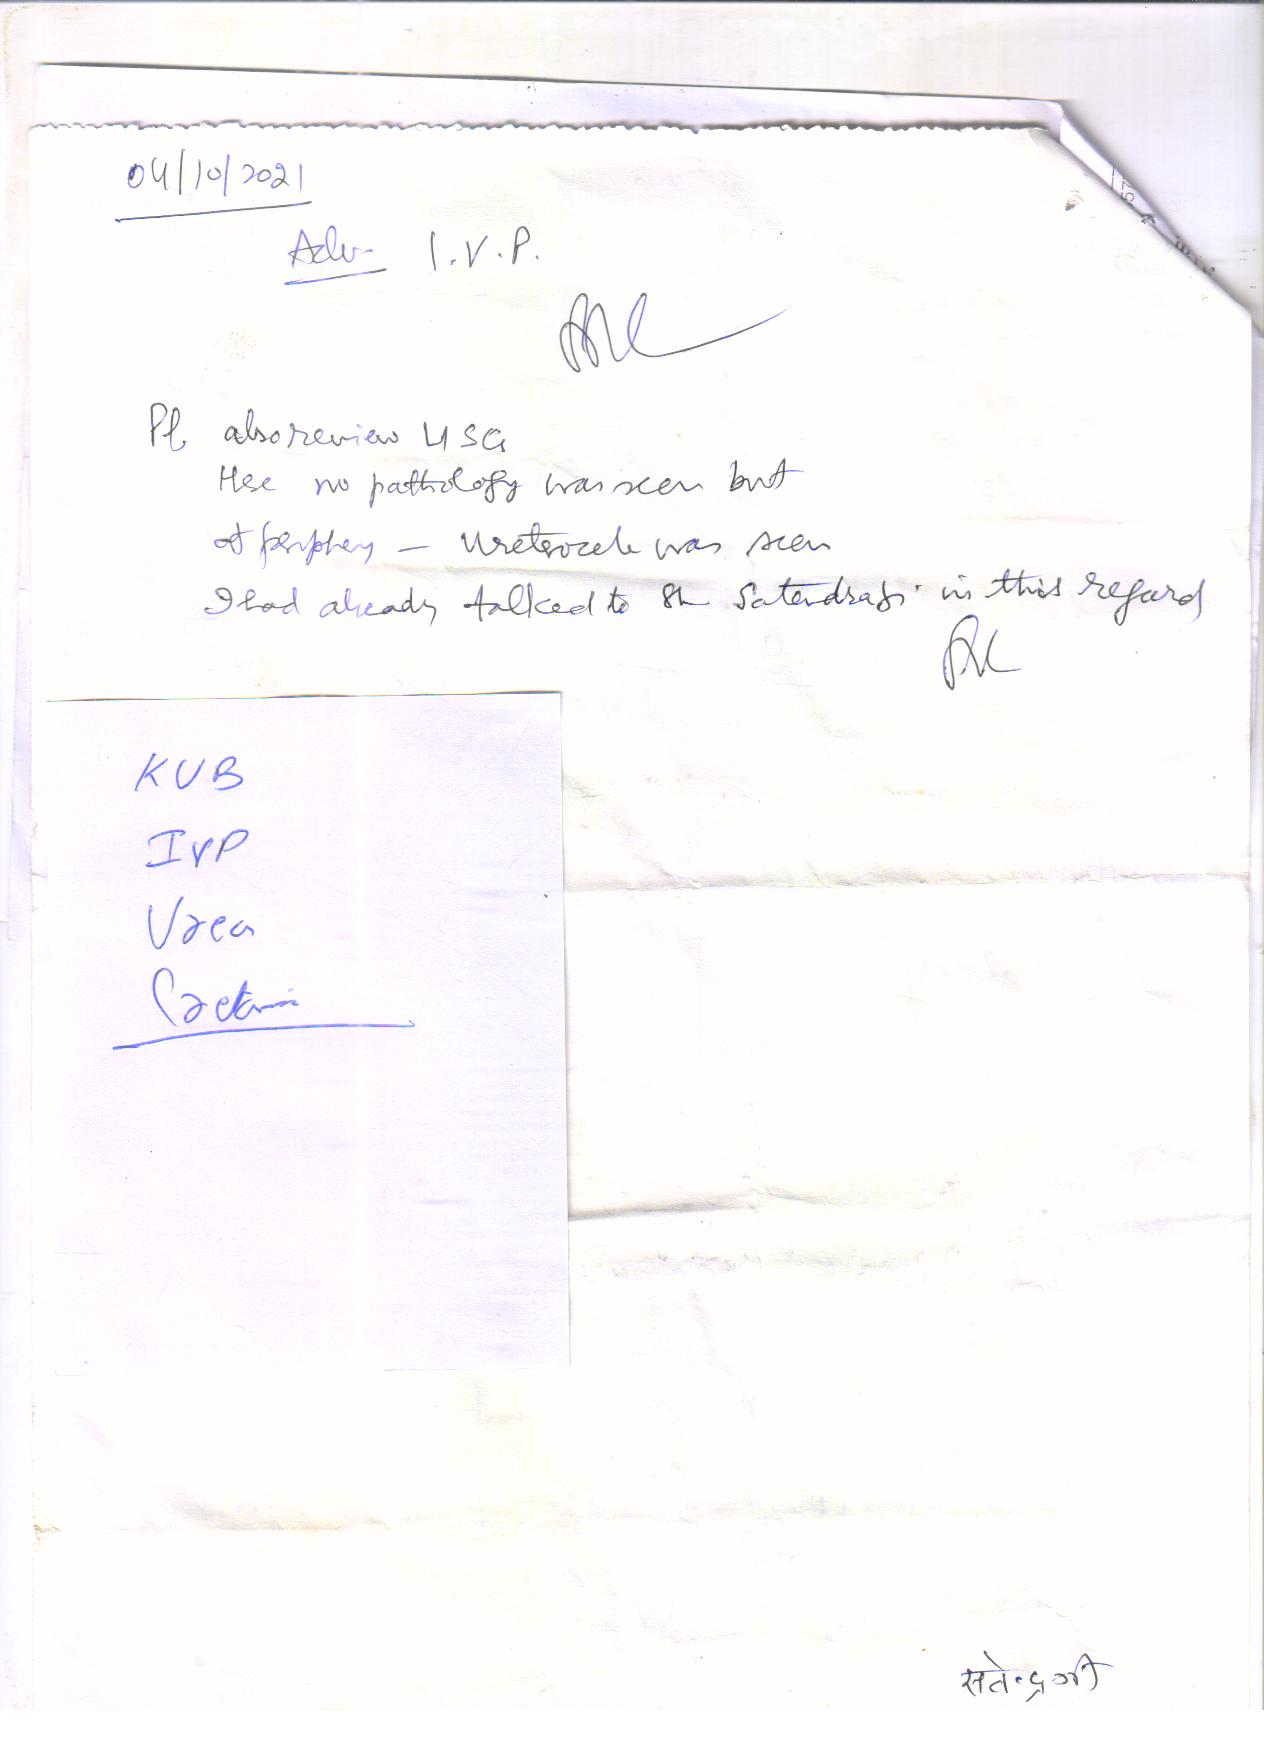 04/10/2021
Adv I.V.P.
Pl. also review USG
Here no pathology was seen but
at periphery — Ureterocele was seen
I had already talked to Sh Satendraji in this regard
KUB
IVP
Urea
सतेन्द्र जी